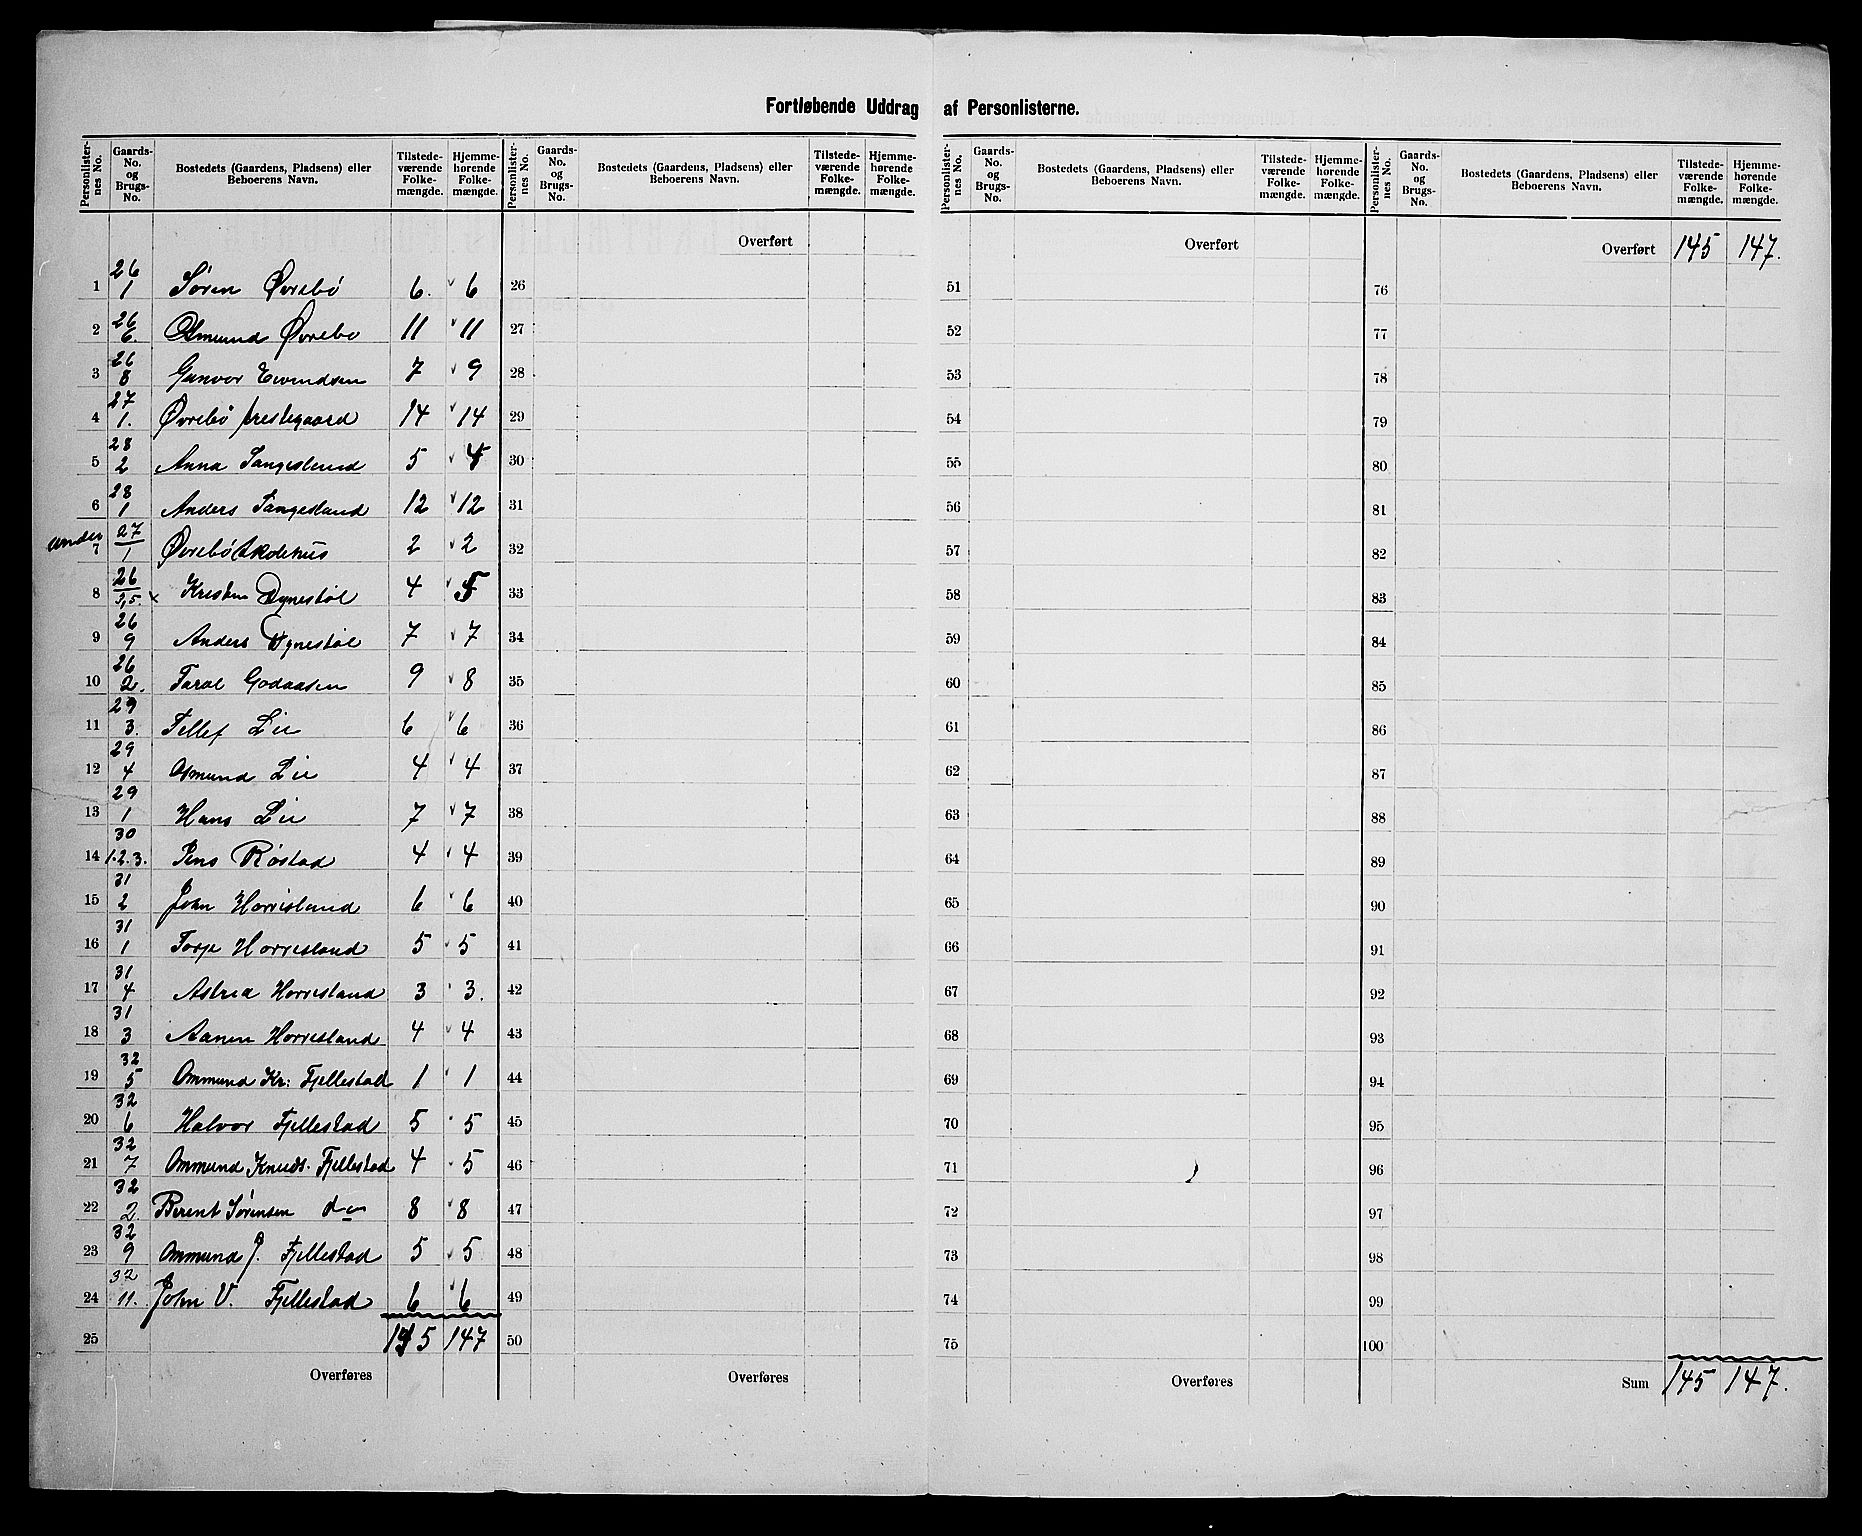 Fortløbende Uddrag af Personlisterne.
Personlister-nes No. Gaards-No. og Brugs-No. Bostedets (Gaardens, Pladsens) eller Beboerens Navn. Tilstede-værende Folke-mængde. Hjemme-hørende Folke-mængde. Personlister-nes No. Gaards-No. og Brugs-No. Bostedets (Gaardens, Pladsens) eller Beboerens Navn. Tilstede-værende Folke-mængde. Hjemme-hørende Folke-mængde. Personlister-nes No. Gaards-No. og Brugs-No. Bostedets (Gaardens, Pladsens) eller Beboerens Navn. Tilstede-værende Folke-mængde. Hjemme-hørende Folke-mængde. Personlister-nes No. Gaards-No. og Brugs-No. Bostedets (Gaardens, Pladsens) eller Beboerens Navn. Tilstede-værende Folke-mængde. Hjemme-hørende Folke-mængde.
Overført Overført Overført 145 147.
1 26/1 Søren Øvrebø 6. 6 26 51 76
2 26/6. Osmund Øvrebø 11 11 27 52 77
3 26/8 Gunvor Eivindsen 7 9 28 53 78
4 27/1. Øvrebø prestegaard 14 14 29 54 79
5 28/2 Anna Tangesland 5 30 55 80
6 28/1 Anders Tangesland 12 12 31 56 81
under 7 27/1 Øvrebø skolehus 2 2 32 57 82
8 26/3,5. x Kristen Dynestøl 4 5 33 58 83
9 26/9 Anders Dynestøl 7 7 34 59 84
10 26/2. Taral Godaasen 9 8 35 60 85
11 29/3. Tellef Lie 6 6 36 61 86
12 29/4 Osmund Lie 4 4 37 62 87
13 29/1 Hans Lie 7 7 38 63 88
14 30/1.2.3. Jens Røstad 4 4 39 64 89
15 31/2 John Horrisland 6 6 40 65 90
16 31/1 Torje Horrisland 5 5 41 66 91
17 31/4 Astrid Horrisland 3 3. 42 67 92
18 31/3 Aanen Horrisland 4 4 43 68 93
19 32/5 Ommund Kr: Fjellestad 1 1 44 69 94
20 32/6 Halvor Fjellestad 5 5 45 70 95
21 32/7 Ommund Knuds. Fjellestad 4 5 46 71 96
22 32/2. Berent Sørensen do 8 8 47 72 97
23 32/9 Ommund J. Fjellestad 5 5. 48 73 98
24 32/11. John V. Fjellestad 6 6 49 74 99
25 145 147 50 75 100
Overføres Overføres Overføres Sum 145 147.